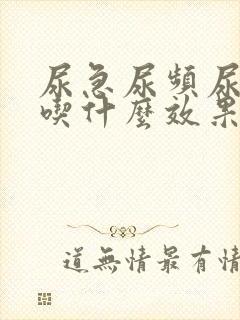 尿急尿頻尿
喫什麼效果
道無情最有情